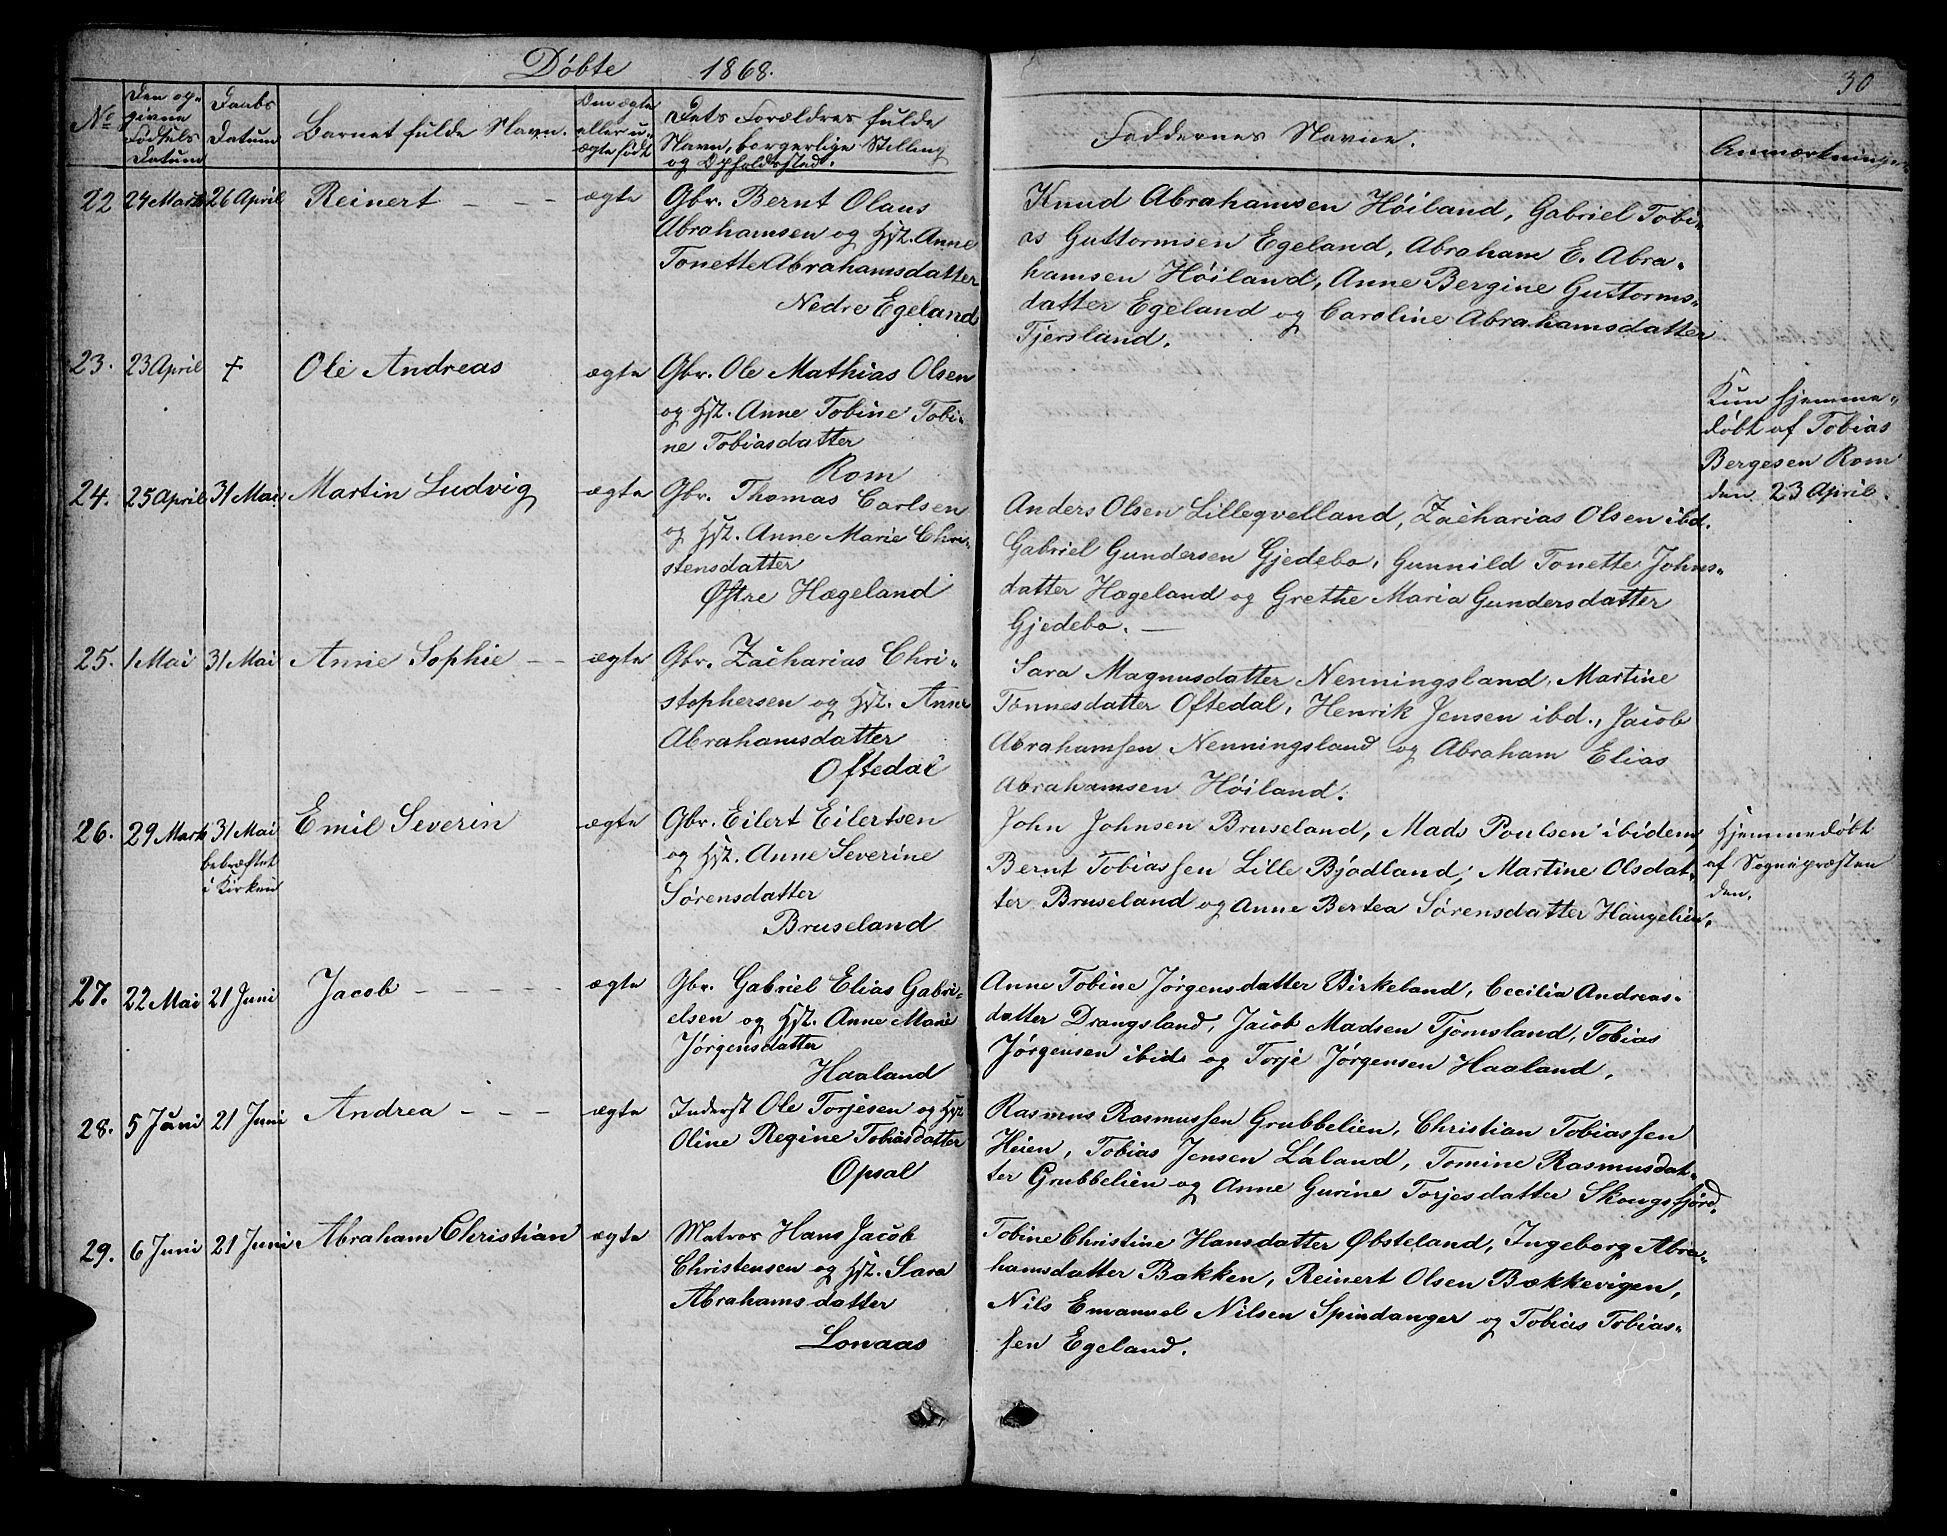 Døbte 1868.
30
No
Den op-
givne
Fødsels
Datum
Daabs
Datum
Barnet fulde Navn.
Den ægte
eller u-
ægte født
Dets Forældres fulde
Navn, borgerlige Stilling
og Opholdssted.
Faddernes Navne.
Anmærkninger
22 24 Marts 26 April Reinert - - - ægte
Gbr. Bernt Olaus
Abrahamsen og Hst. Anne
Tonette Abrahamsdatter
Nedre Egeland
Knud Abrahamsen Høiland, Gabriel Tobi-
as Guttormsen Egeland, Abraham E. Abra-
hamsen Høiland, Anne Bergine Guttorms-
datter Egeland og Caroline Abrahamsdatter
Tjersland.
23. 23 April ┼ Ole Andreas ægte
Gbr. Ole Mathias Olsen
og Hst. Anne Tobine Tobi-
ne Tobiasdatter
Rom
Kun hjemme-
døbt af Tobias
Bergesen Rom
den 23 April.
24. 25 April 31 Mai Martin Ludvig ægte
Gbr. Thomas Carlsen
og Hst. Anne Marie Chri-
stensdatter
Østre Hægeland
Anders Olsen Lilleqvelland, Zacharias Olsen ibd.
Gabriel Gundersen Gjedebo, Gunnild Tonette Johns-
datter Hægeland og Grethe Maria Gundersdatter
Gjedebo. -
25. 1 Mai 31 Mai Anne Sophie - - ægte
Gbr. Zacharias Chri-
stophersen og Hst. Anne
Abrahamsdatter
Oftedal
Sara Magnusdatter Nenningsland, Martine
Tønnesdatter Oftedal, Henrik Jensen ibd., Jacob
Abrahamsen Nenningsland og Abraham Elias
Abrahamsen Høiland.
26. 29 Marts 31 Mai
bekræftet
i Kirken
Emil Severin ægte
Gbr. Eilert Eilertsen
og Hst. Anne Severine
Sørensdatter
Bruseland
John Johnsen Bruseland, Mads Poulsen ibidem,
Bernt Tobiassen Lille Bjødland, Martine Olsdat-
ter Bruseland og Anne Bertea Sørensdatter Haugelien.
Hjemmedøbt
af Sognepræsten
den.
27. 22 Mai 21 Juni Jacob - - - - - ægte
Gbr. Gabriel Elias Gabri-
elsen og Hst. Anne Marie
Jørgensdatter
Haaland
Anne Tobine Jørgensdatter Birkeland, Cecilia Andreas-
datter Drangsland, Jacob Madsen Tjomsland, Tobias
Jørgensen ibid. og Torje Jørgensen Haaland.
28. 5 Juni 21 Juni Andrea - - - ægte
Inderst Ole Torjesen og Hst.
Oline Regine Tobiasdatter
Opsal
Rasmus Rasmussen Grubbelien, Christian Tobiassen
Heien, Tobias Jensen Laland, Tomine Rasmusdat-
ter Grubbelien og Anne Gurine Torjesdatter Skougsfjord.
29. 6 Juni 21 Juni Abraham Christian ægte
Matros Hans Jacob
Christensen og Hst. Sara
Abrahamsdatter
Lonaas
Tobine Christine Hansdatter Øbsteland, Ingeborg Abra-
hamsdatter Bakken, Reinert Olsen Bækkevigen,
Nils Emanuel Nilsen Spindanger og Tobias Tobias-
sen Egeland.